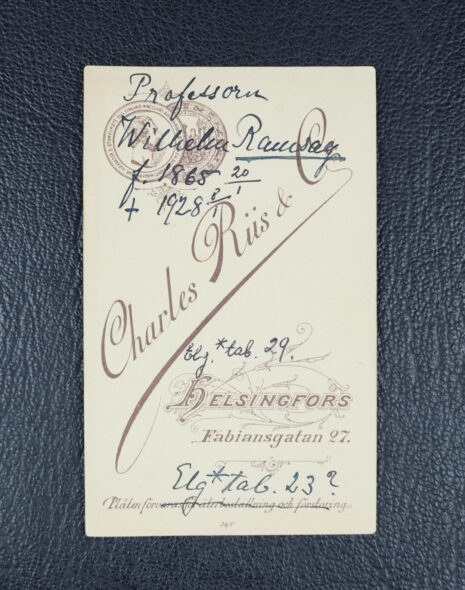 Professorn
Wilhelm Ramsay
f. 1865 20/1
+ 1928
Charles Riis & Co
Elg.* tab. 29.
HELSINGFORS
Fabiansgatan 27.
Elg* tab. 23?
Plåten förvaras för återbeställning och förstoring.